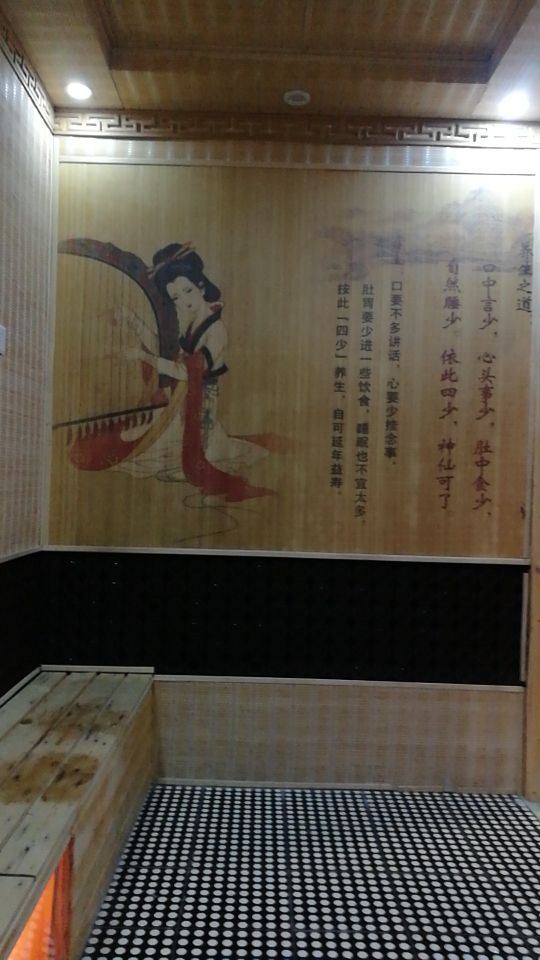 养生之道
口中言少，心头事少，肚中食少，
自然睡少。依此四少，神仙可了。
口要不多讲话，心要少挂念事。
肚胃要少进一些饮食，睡眠也不宜太多，
按此「四少」养生，自可延年益寿。